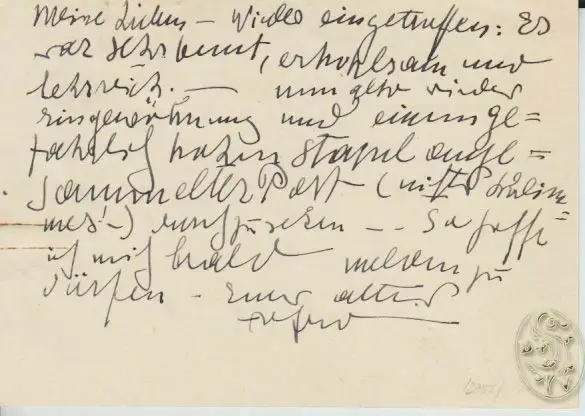 Meine Lieben – Wieder eingetroffen: Es
war sehr bunt, erholsam und
lehrreich. — nun gilts wieder
Eingewöhnung und einen ge=
fährlich hohen Stapel ange=
sammelter Post (nichts Schlim=
mes! –) durchzusehen – – So hoffe
ich mich bald melden zu
dürfen – Euer alter